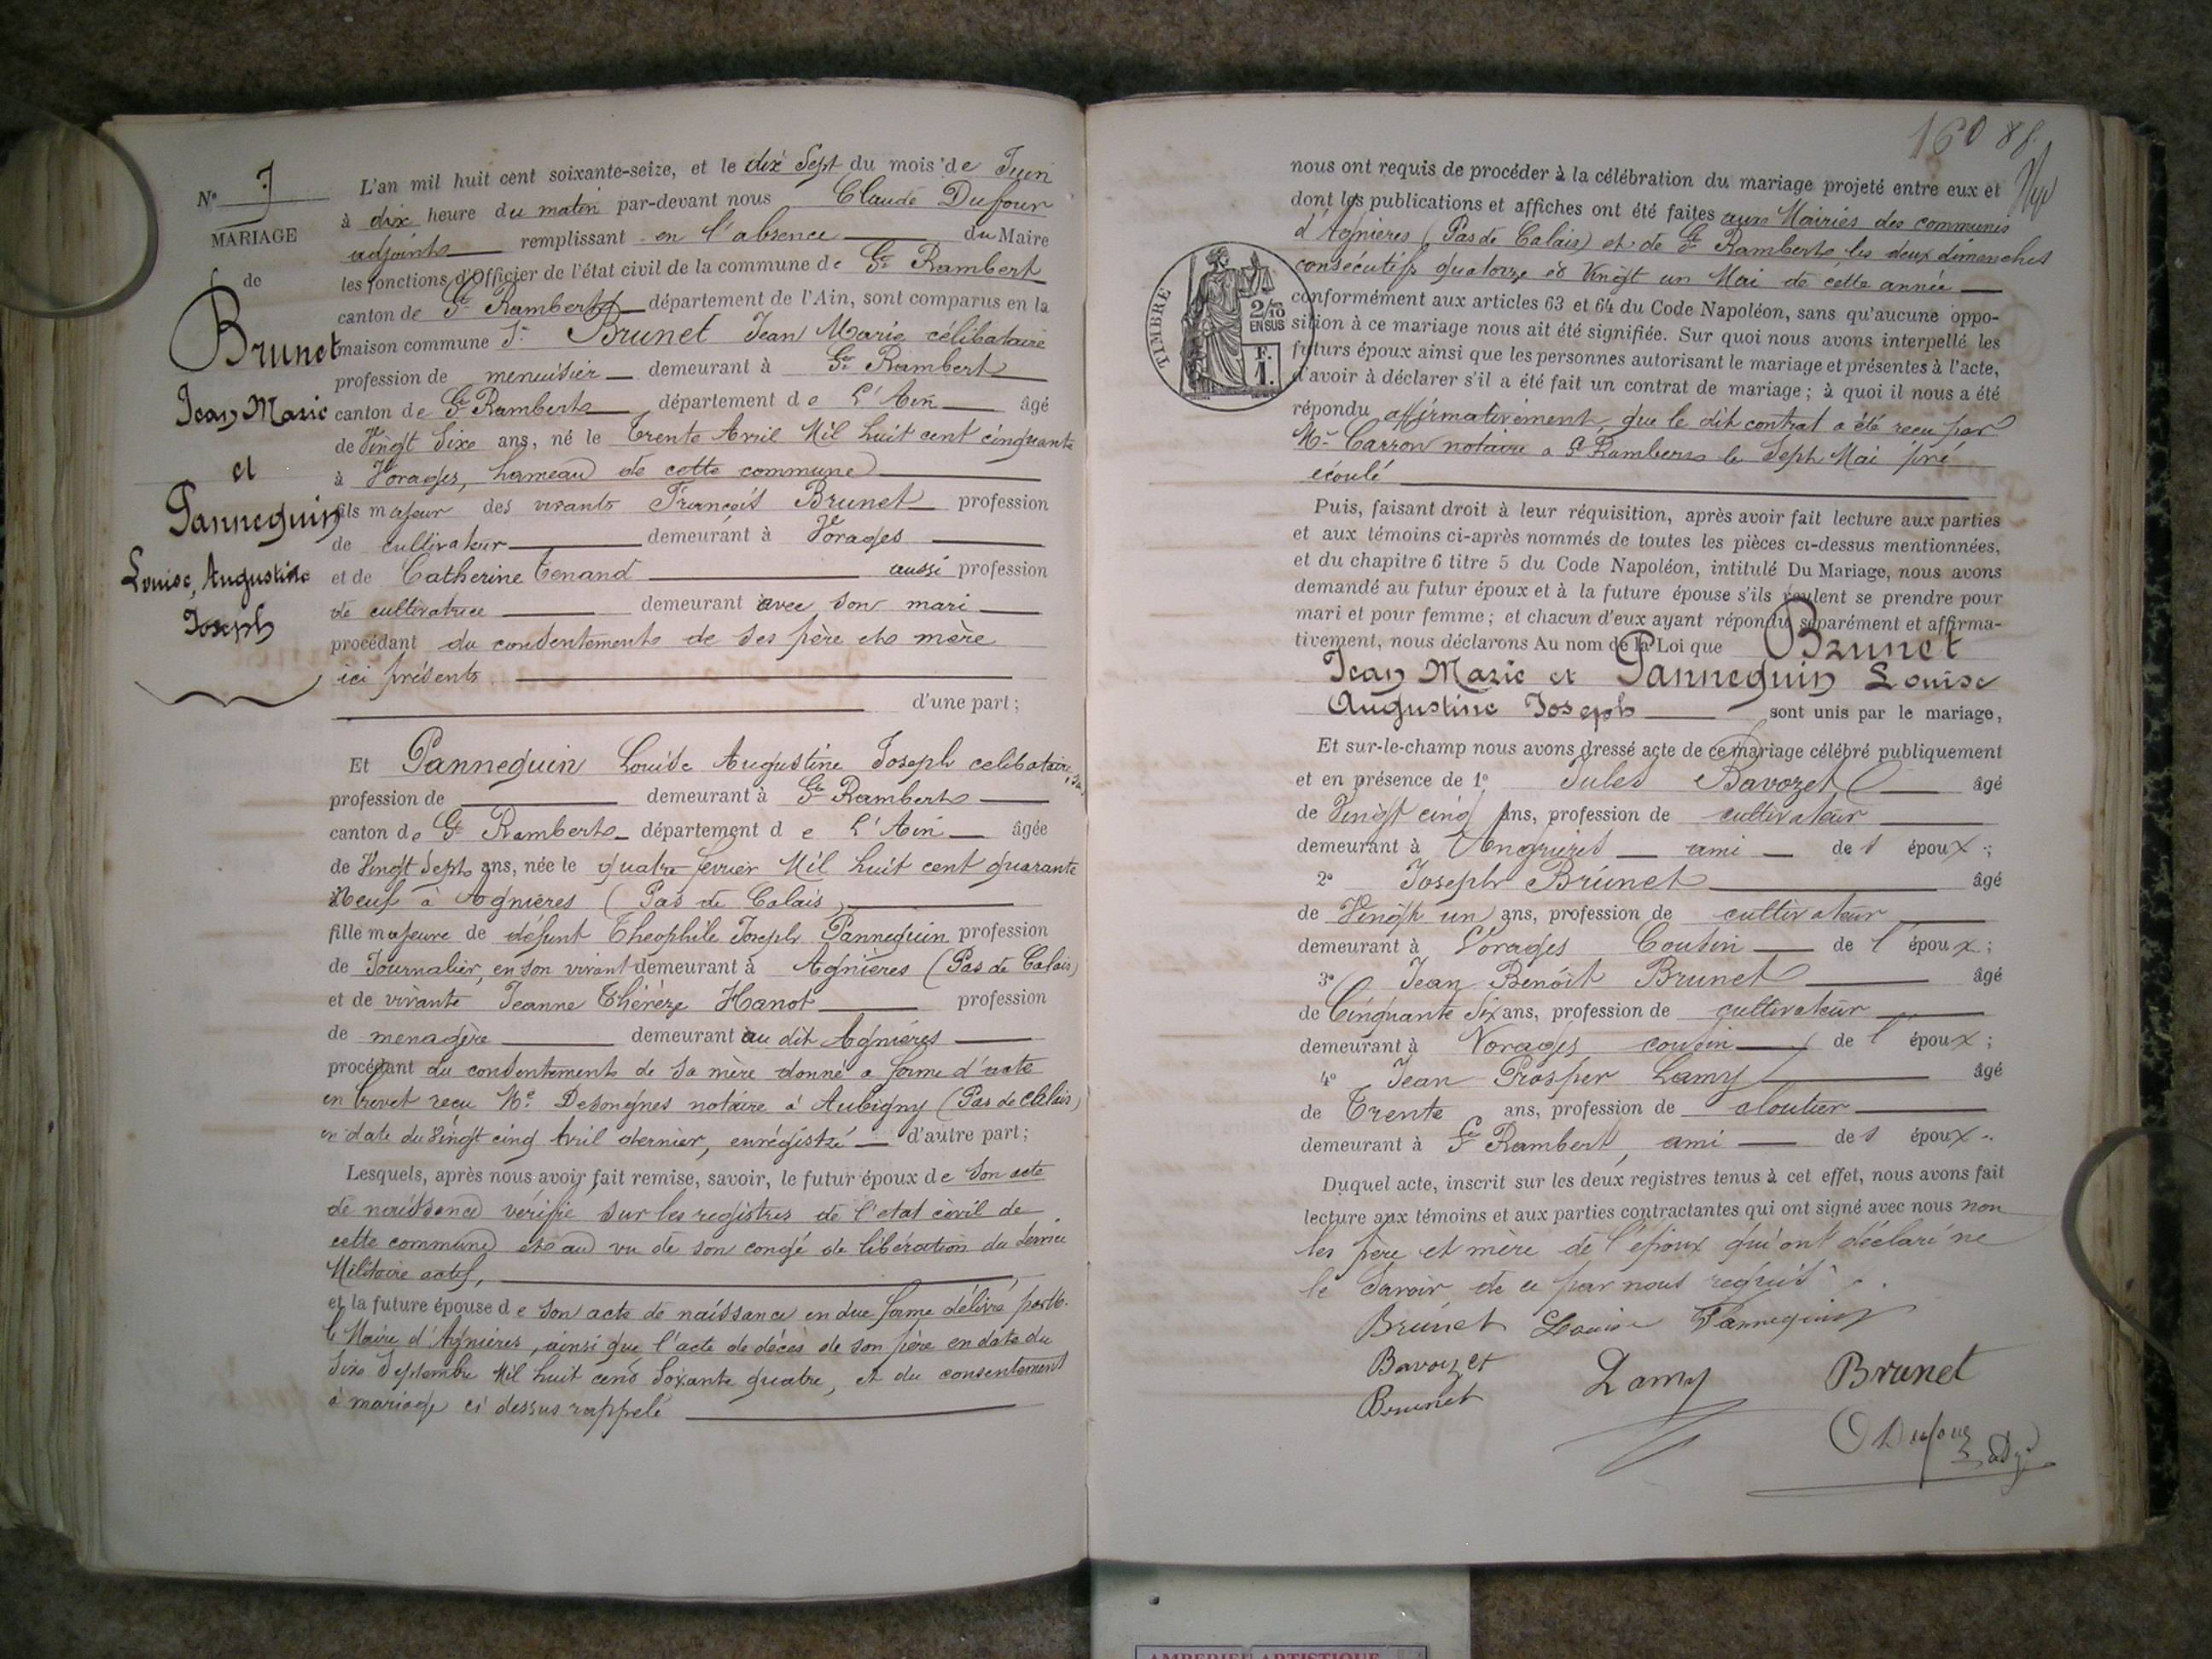 Nº 7
MARIAGE
de
Brunet
Jean Marie
et
Pannequin
Louise, Augustine
Joseph
L'an mil huit cent soixante-seize, et le dix sept du mois de Juin
à dix heure du matin par-devant nous Claude Dufour
adjoint remplissant en l'absence du Maire
les fonctions d'Officier de l'état civil de la commune de St Rambert
canton de St Rambert département de l'Ain, sont comparus en la
maison commune Sr Brunet Jean Marie célibataire
profession de menuisier demeurant à St Rambert
canton de St Rambert département de l'Ain âgé
de Vingt Sixe ans, né le trente Avril Mil huit cent cinquante
à Vorages, hameau de cette commune
fils majeur des vivants François Brunet profession
de cultivateur demeurant à Vorages
et de Catherine Tenand aussi profession
de cultivatrice demeurant avec son mari
procédant du consentement de ses père et mère
ici présents
d'une part;
Et Pannequin Louise Augustine Joseph celibataire
profession de demeurant à St Rambert
canton de St Rambert département de l'Ain âgée
de Vingt Sept ans, née le quatre fevrier Mil huit cent quarante
Neuf à Agnières (Pas de Calais)
fille majeure de défunt Theophile Joseph Pannequin profession
de Journalier, en son vivant demeurant à Agnières (Pas de Calais)
et de vivante Jeanne Thérèze Hanot profession
de menagère demeurant au dit Agnières
procédant du consentement de sa mère donné a forme d'acte
en brevet reçu Me Desongnes notaire à Aubigny (Pas de Calais)
en date du Vingt cinq Avril dernier, enrégistré d'autre part;
Lesquels, après nous avoir fait remise, savoir, le futur époux de son acte
de naissance vérifié sur les registres de l'etat civil de
cette commune et au vu de son congé de libération du service
Militaire actif,
et la future épouse de son acte de naissance en due forme délivré par Mr
le Maire d'Agnières, ainsi que l'acte de décès de son père en date du
Sixe Septembre Mil huit cent Soixante quatre, et du consentement
à mariage ci dessus rappelé
160 88
nous ont requis de procéder à la célébration du mariage projeté entre eux et
dont les publications et affiches ont été faites aux Mairies des communes
d'Agnières (Pas de Calais) et de St Rambert les deux dimanches
consécutifs quatorze et Vingt un Mai de cette année
conformément aux articles 63 et 64 du Code Napoléon, sans qu'aucune oppo-
sition à ce mariage nous ait été signifiée. Sur quoi nous avons interpellé les
futurs époux ainsi que les personnes autorisant le mariage et présentes à l'acte,
d'avoir à déclarer s'il a été fait un contrat de mariage; à quoi il nous a été
répondu affirmativement, que le dit contrat a été reçu par
Me Carron notaire a St Rambert le Sept Mai pré
écoulé
TIMBRE
2/10
EN SUS
F.
1.
Puis, faisant droit à leur réquisition, après avoir fait lecture aux parties
et aux témoins ci-après nommés de toutes les pièces ci-dessus mentionnées,
et du chapitre 6 titre 5 du Code Napoléon, intitulé Du Mariage, nous avons
demandé au futur époux et à la future épouse s'ils veulent se prendre pour
mari et pour femme; et chacun d'eux ayant répondu séparément et affirma-
tivement, nous déclarons Au nom de la Loi que Brunet
Jean Marie et Pannequin Louise
Augustine Joseph sont unis par le mariage,
Et sur-le-champ nous avons dressé acte de ce mariage célébré publiquement
et en présence de 1º Jules Bavozet âgé
de Vingt cinq ans, profession de cultivateur
demeurant à Angrières ami des époux;
2º Joseph Brunet âgé
de Vingt un ans, profession de cultivateur
demeurant à Vorages Cousin de l'époux;
3º Jean Benoît Brunet âgé
de Cinquante Six ans, profession de cultivateur
demeurant à Vorages cousin de l'époux;
4º Jean Prosper Lamy âgé
de Trente ans, profession de cloutier
demeurant à St Rambert, ami des époux.
Duquel acte, inscrit sur les deux registres tenus à cet effet, nous avons fait
lecture aux témoins et aux parties contractantes qui ont signé avec nous non
les père et mère de l'époux qui ont déclaré ne
le savoir de ce par nous requis.
Brunet Louise Pannequin
Bavozet Lamy Brunet
Brunet
C Dufour adj
AMBERIEU ARTISTIQUE